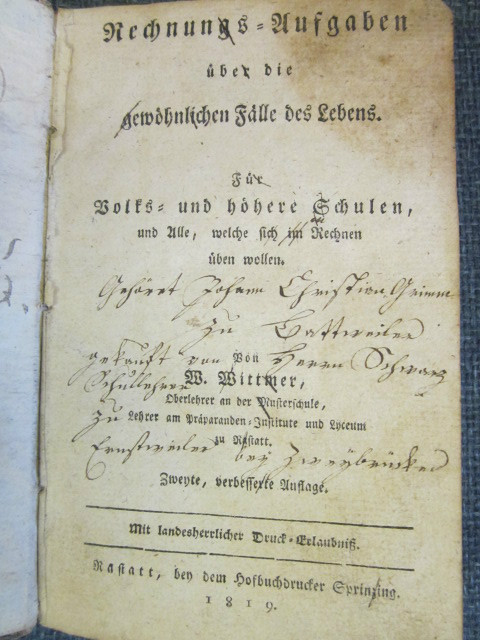 Rechnungs-Aufgaben
über die
gewöhnlichen Fälle des Lebens.
Für
Volks- und höhere Schulen,
und Alle, welche sich im Rechnen
üben wollen.
Gehöret Johann Christian Grimm
zu Battweiler
gekauft von Herrn Schwarz
Von
Schullehrer
W. Wittmer,
Oberlehrer an der Musterschule,
zu
Lehrer am Präparanden-Institute und Lyceum
zu Rastatt.
Ernstweiler bey Zweybrücken
Zweyte, verbesserte Auflage.
Mit landesherrlicher Druck-Erlaubniß.
Rastatt, bey dem Hofbuchdrucker Sprinzing.
1819.